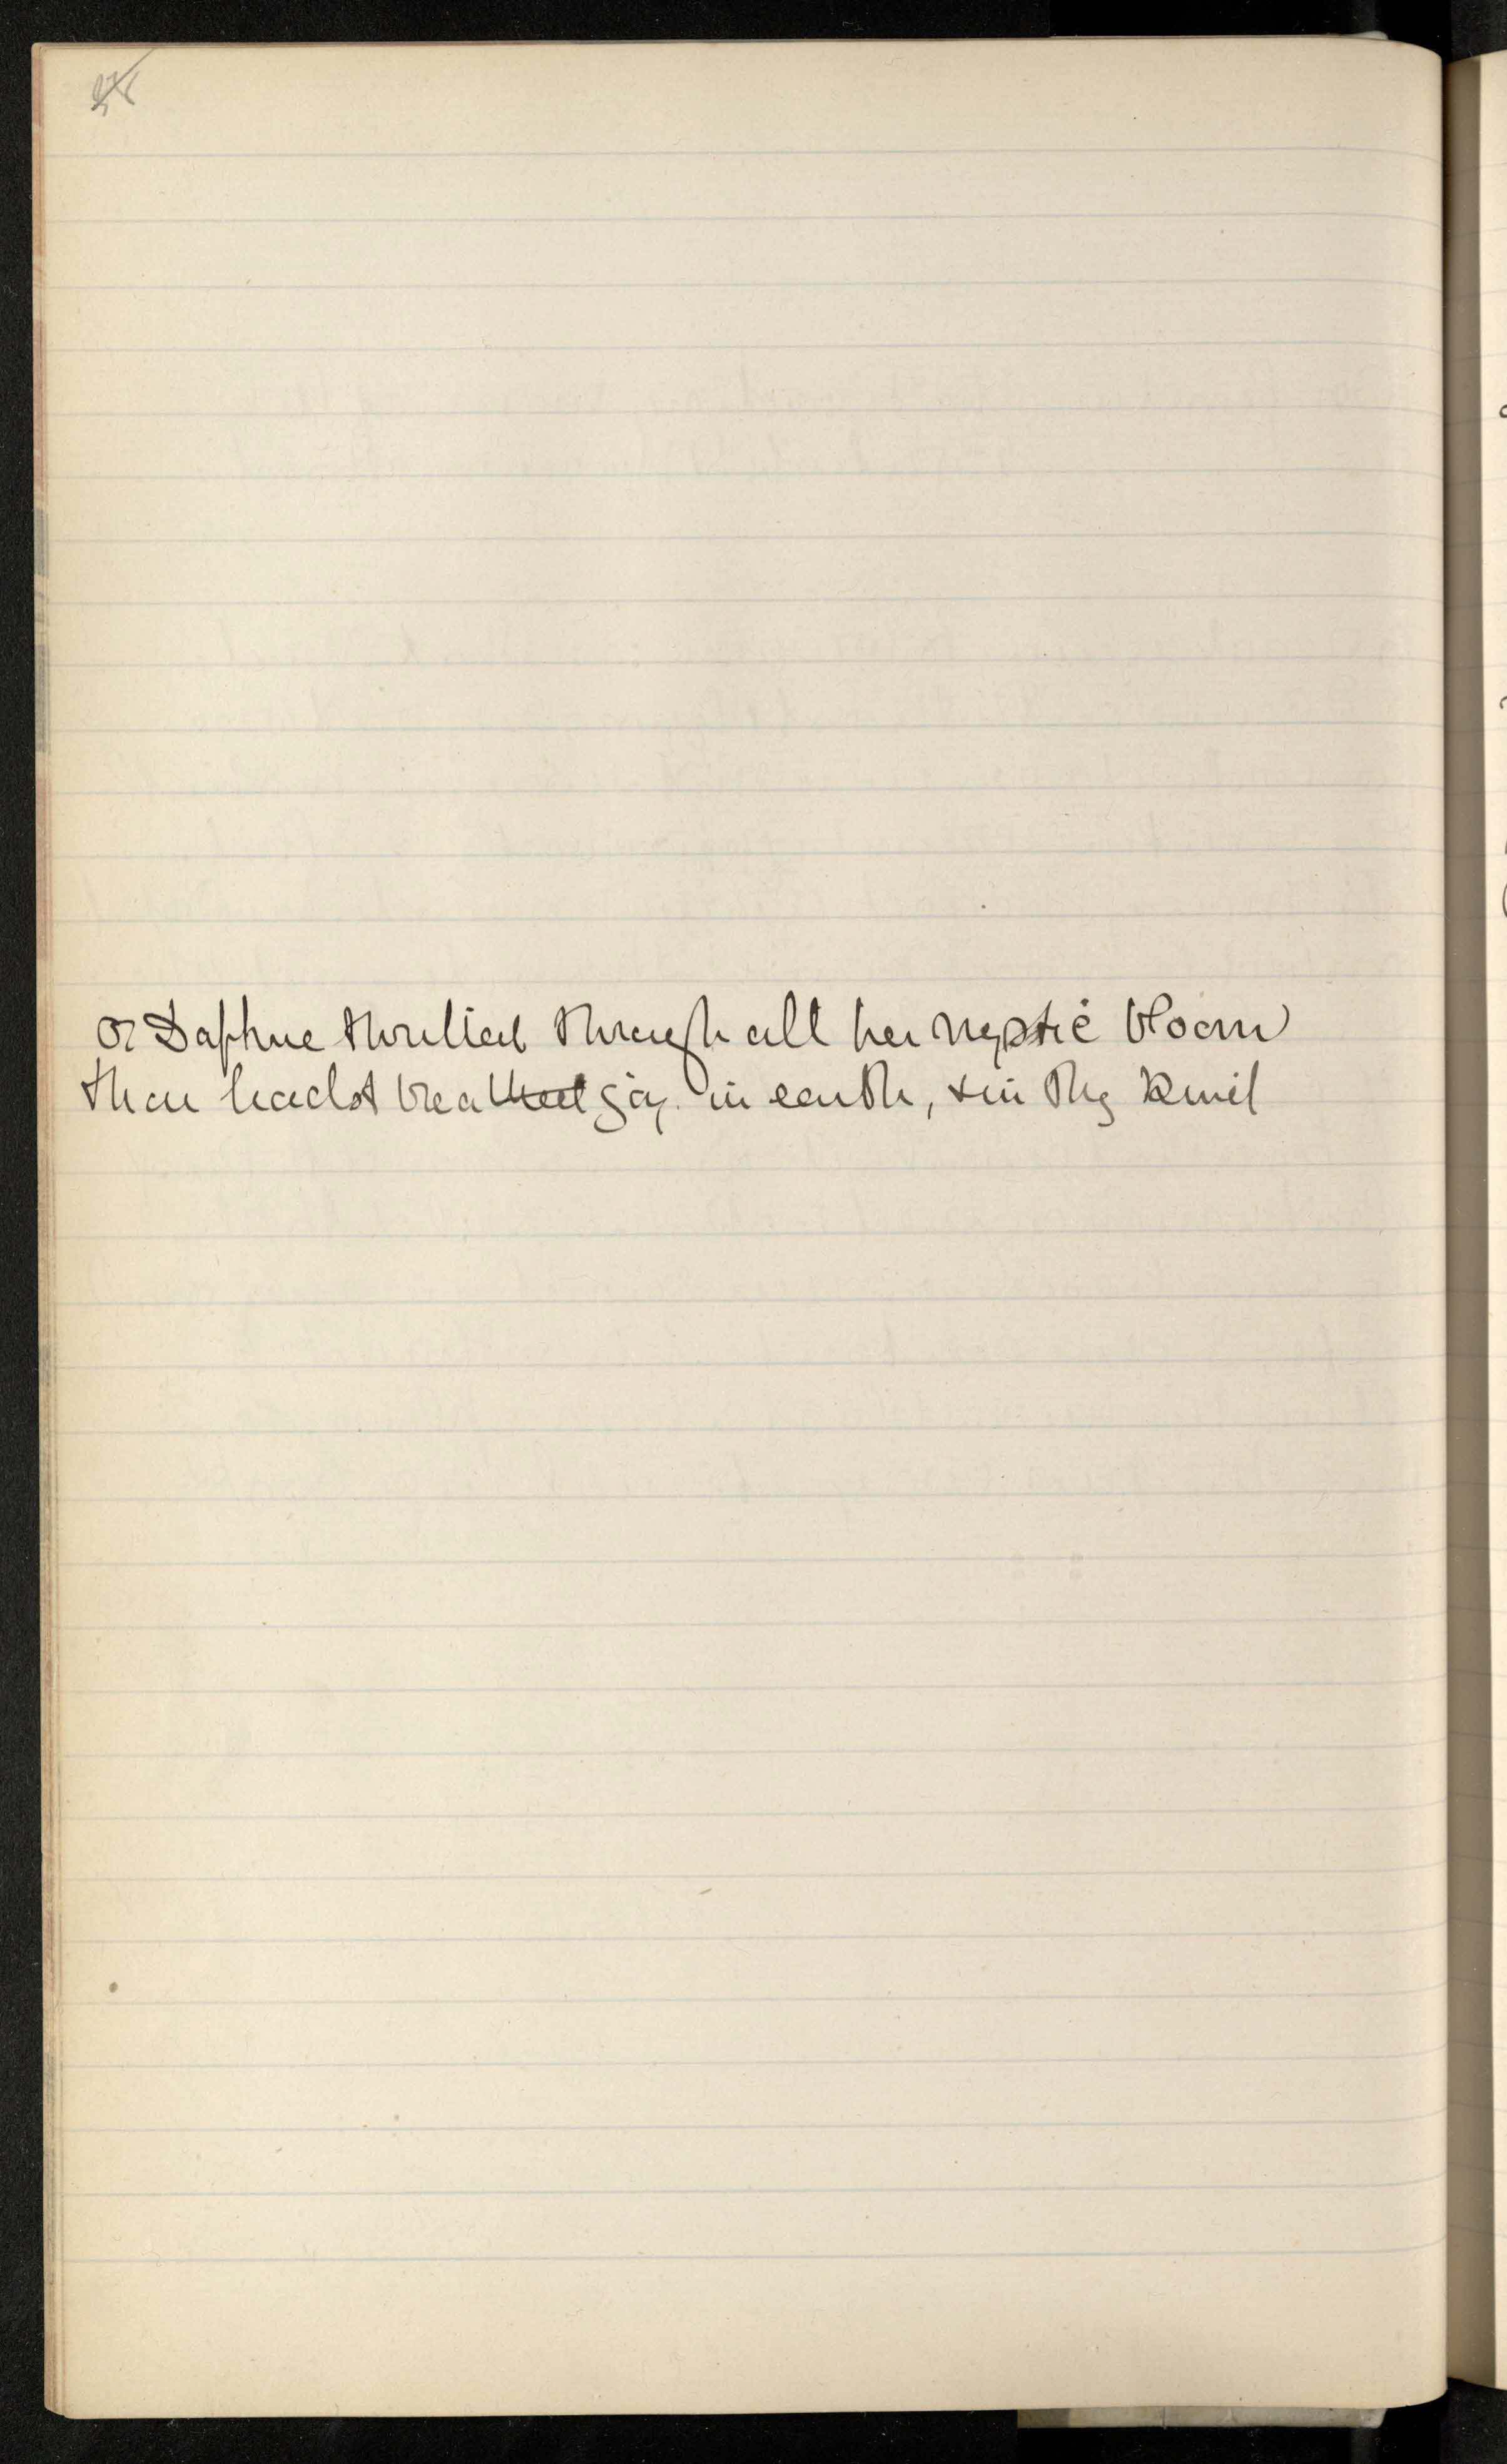 or Daphne thrilled through all her mystic bloom
thou hadst breathed joy in earth, & in thy kind